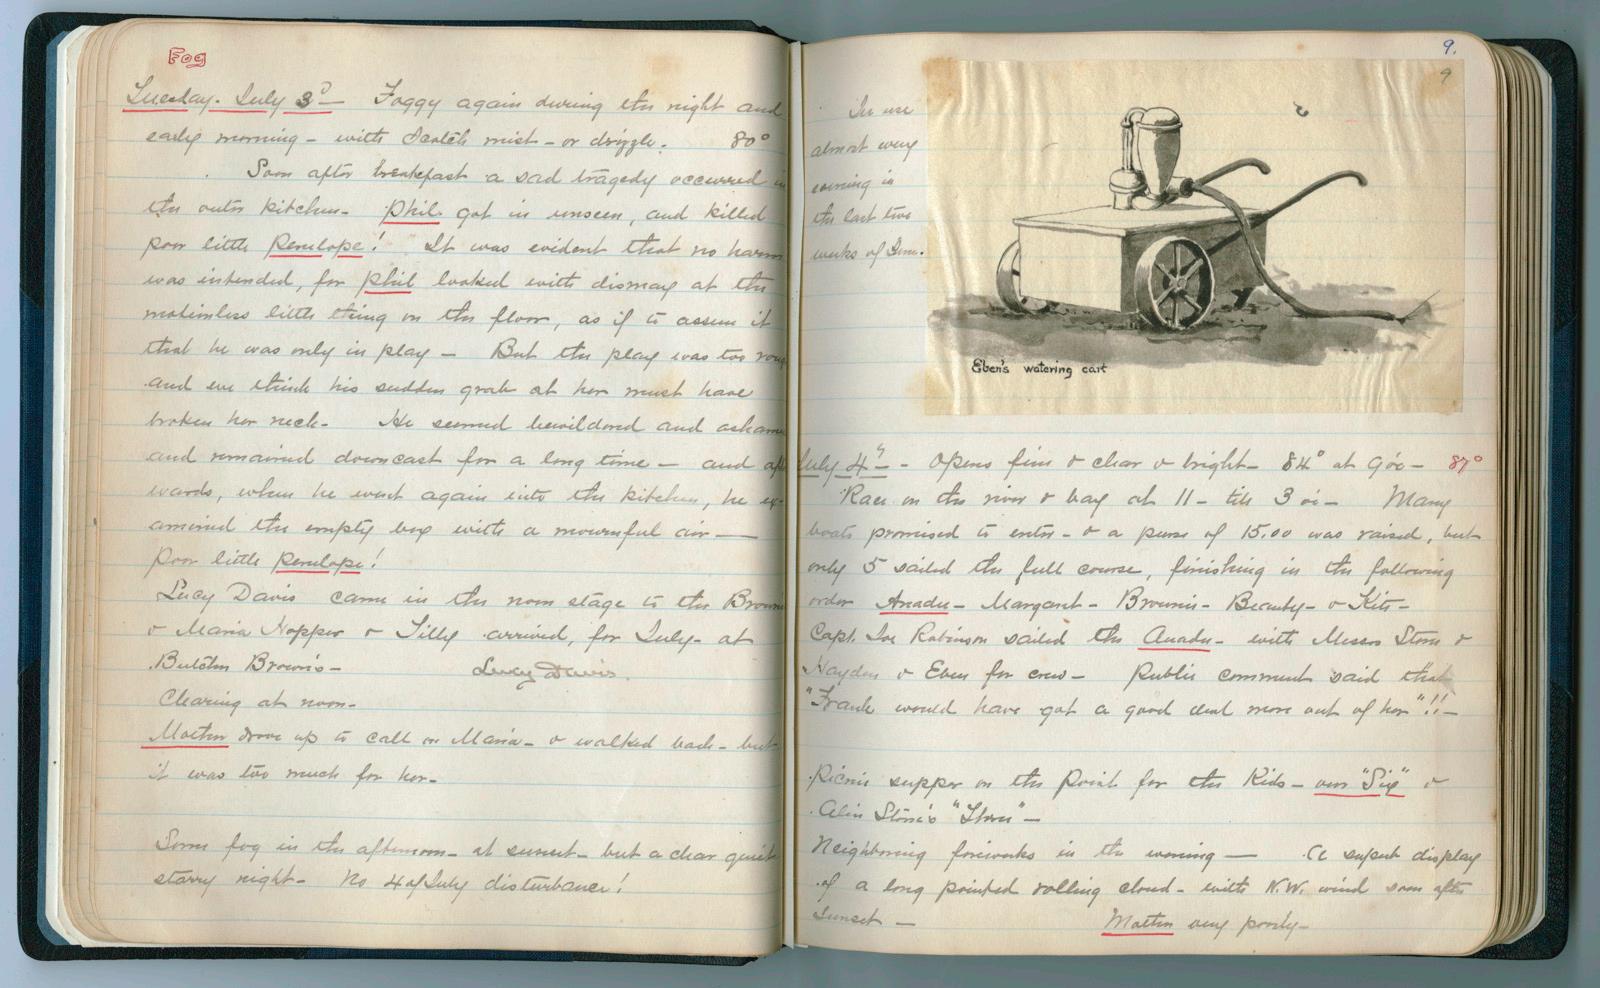 Fog
Tuesday. July 3d — Foggy again during the night and
early morning - with Scotch mist - or drizzle. 80°
Soon after breakfast a sad tragedy occurred in
the outer kitchen - Phil got in unseen, and killed
poor little Penelope! It was evident that no harm
was intended, for Phil looked with dismay at the
motionless little thing on the floor, as if to assure it
that he was only in play — But the play was too rough
and we think his sudden grab at her must have
broken her neck - He seemed bewildered and ashamed
and remained downcast for a long time — and after-
wards, when he went again into the kitchen, he ex-
amined the empty box with a mournful air —
Poor little Penelope!
Lucy Davis came in the noon stage to the Brownies
& Maria Hopper & Tilly arrived, for July - at
Butler Brown's -
Lucy Davis.
Clearing at noon -
Mother drove up to call on Maria - & walked back - but
it was too much for her -
Some fog in the afternoon - at sunset - but a clear quiet
starry night - No 4 of July disturbance!
9.
9
In use
almost every
evening in
the last two
weeks of June.
Eben's watering cart
July 4th - Opens fine & clear & bright - 84° at 9 oc - 87°
Race on the river & bay at 11 - till 3 oc - Many
boats promised to enter - & a purse of 15.00 was raised, but
only 5 sailed the full course, finishing in the following
order Anadu - Margaret - Brownie - Beauty - & Kits -
Capt. Joe Robinson sailed the Anadu - with Messrs Stone &
Hayden & Eben for crew - Public comment said that
"Frank would have got a good deal more out of her"!! -
Picnic supper on the Point for the Kids - our "Six" &
Stone's "Three" -
Neighboring fireworks in the evening — A superb display
of a long pointed rolling cloud - with N.W. wind soon after
sunset — Mother very poorly -